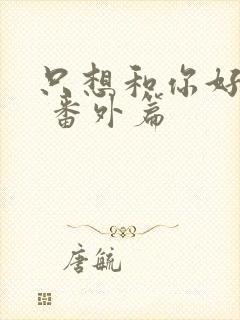 只想和你好
番外篇
唐毓